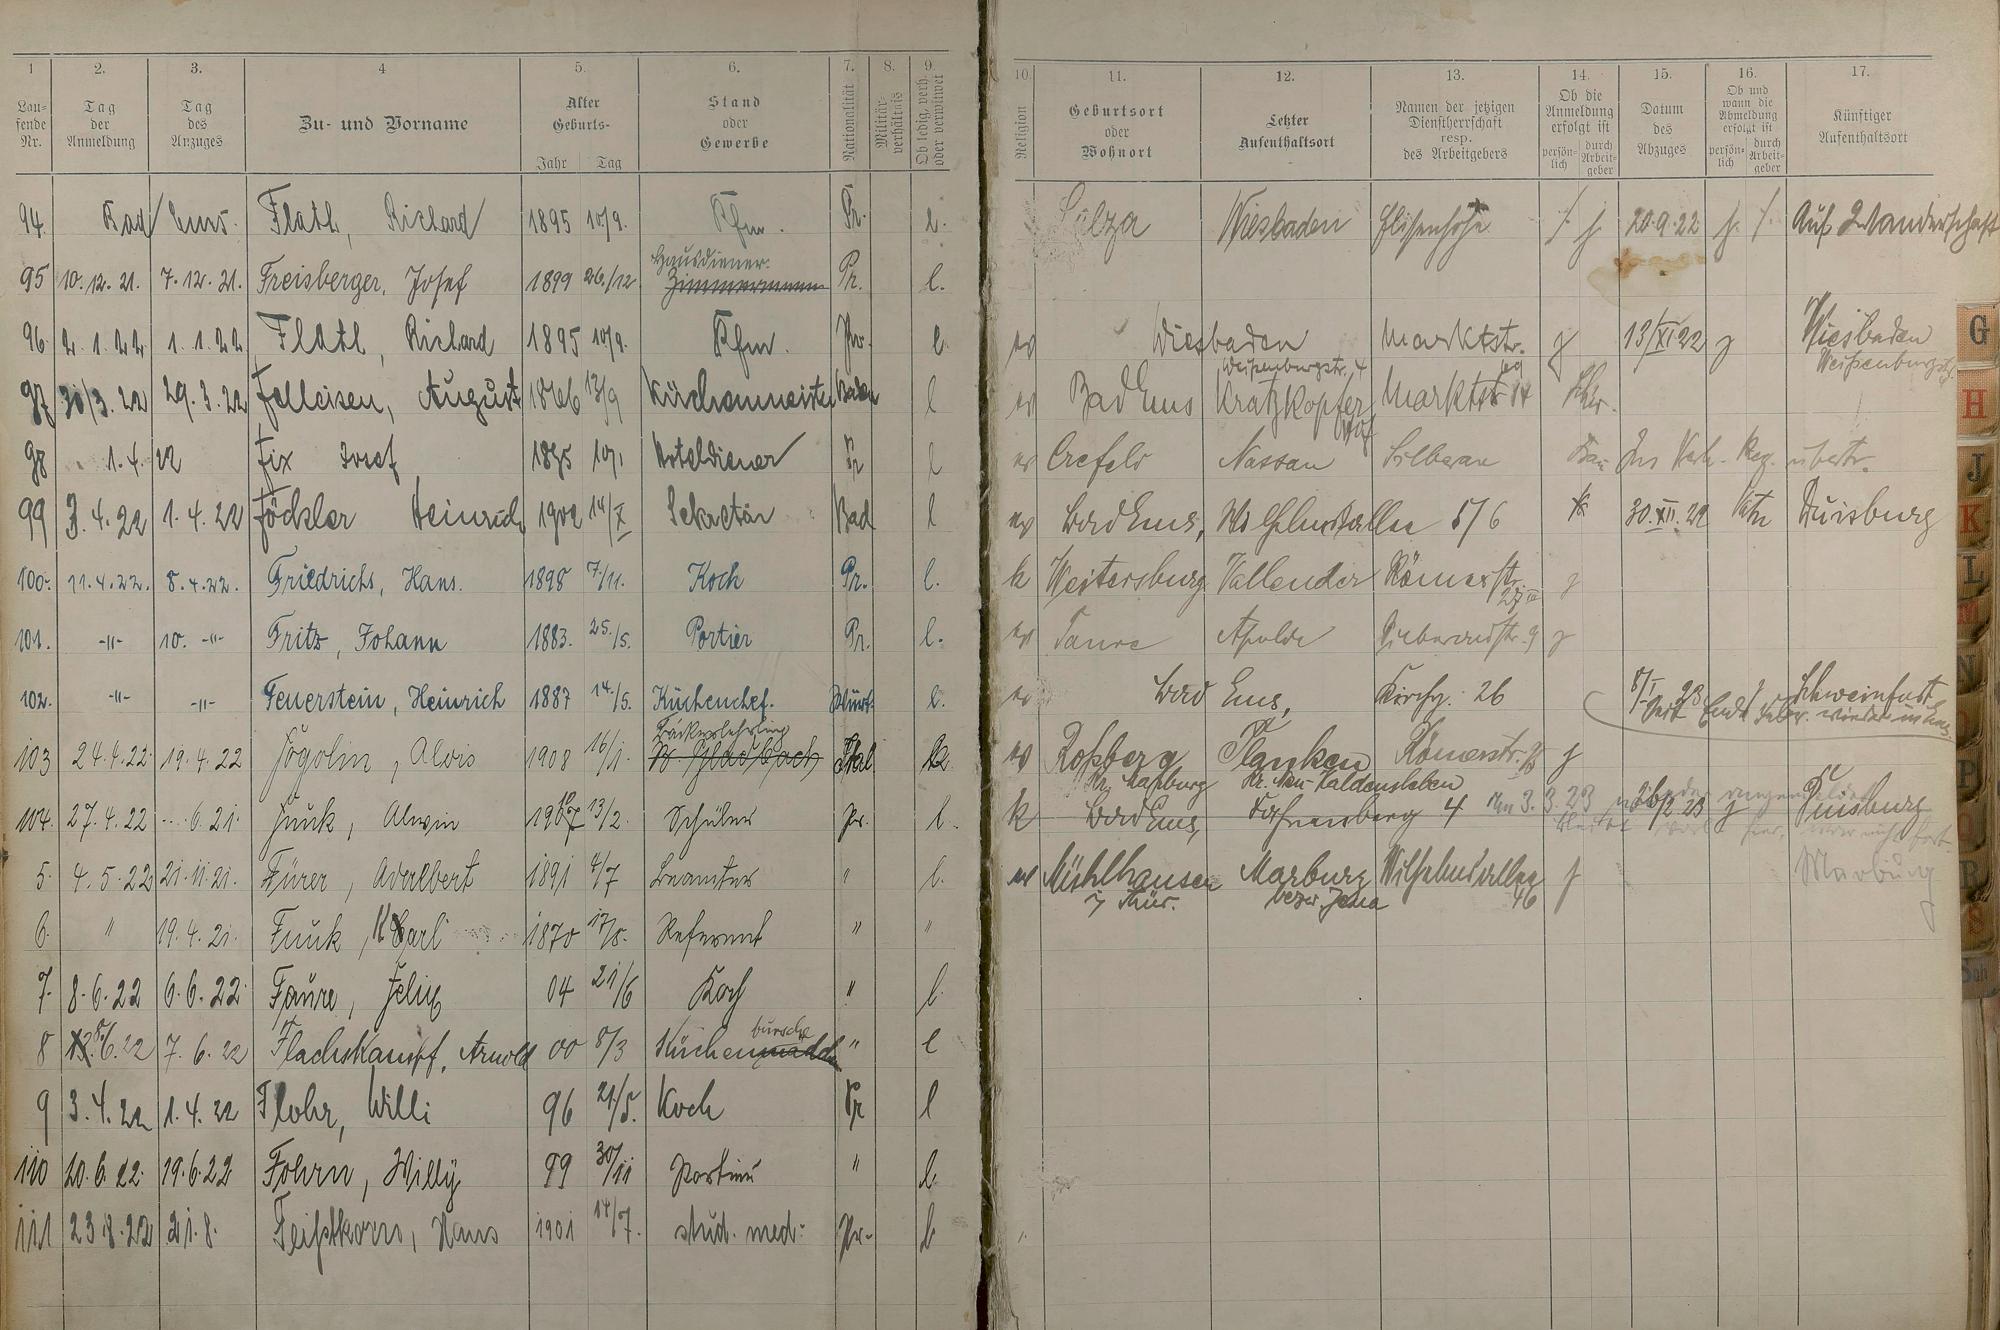 1 2. 3. 4 5. 6. 7. 8. 9.
Lau-fende Nr. Tag der Anmeldung Tag des Anzuges Zu- und Vorname Alter Geburts- Jahr Tag Stand oder Gewerbe Nationalität Militär-verhältnis Ob ledig, verh. oder verwitwet
94. Bad Ems. Flath, Richard 1895 10/9. Kfm. Pr. l.
Hausdiener.
95 10.12.21. 7.12.21. Freisberger, Josef 1899 26./12 Zimmermann Pr. l.
96. 2.1.22 1.1.22 Flath, Richard 1895 10/9. Kfm. Pr. l
97 30/3.22 29.3.22 Felleisen, August 1866 13/9 Küchenmeister Baden l
98 1.4.22 Fix Josef 1895 10/1 Hoteldiener Pr l
99 3.4.22 1.4.22 Föckler Heinrich 1902 14/X Sekretär Bad l
100. 11.4.22. 8.4.22. Friedrichs, Hans. 1898 7./11. Koch Pr. l.
101. -"- 10. -"- Fritz, Johann 1883. 25./5. Portier Pr. l.
102. -"- -"- Feuerstein, Heinrich 1887 14./5. Küchenchef. Würt. l.
Bäckerlehrling
103 24.4.22 19.4.22 Fögolin, Alvis 1908 16/1. Ital k
104. 27.4.22 6.21. Funk, Alwin 1907 13/2. Schüler Pr. l.
5. 4.5.22 21.11.21. Fürer, Adalbert 1891 4/7 Beamter " l.
6. " 19.4.21. Funk, Karl 1870 17/8. Referent " "
7. 8.6.22 6.6.22 Faure, Felix 04 21/6 Koch " l.
bursche
8 8/6.22 7.6.22 Flachskampf, Arnold 00 8/3 Küchenmädch " l
9 3.4.22 1.4.22 Flohr, Willi 96 21/5. Koch Pr l
110 20.6.22. 19.6.22 Fohrn, Willy 99 30/11 Portier " l.
111 23.8.22 21.8. Feistkorn, Hans 1901 14/7. stud. med. Pr. l
10. 11. 12. 13. 14. 15. 16. 17.
Religion Geburtsort oder Wohnort Letzter Aufenthaltsort Namen der jetzigen Dienstherrschaft resp. des Arbeitgebers Ob die Anmeldung erfolgt ist persön-lich durch Arbeit-geber Datum des Abzuges Ob und wann die Abmeldung erfolgt ist persön-lich durch Arbeit-geber Künftiger Aufenthaltsort
Sulza Wiesbaden Elisenhöhe /. j. 20.9.22 j. /. Auf Wanderschaft
ev Wiesbaden Marktstr. j 13/XI 22 j Wiesbaden
Weißenburgstr. 4 Weißenburgstr.
ev Bad Ems Kratzkopfer Marktstr
Hof
ev Crefeld Nassau Silberau Ins Verh. Reg. übertr.
ev Bad Ems, Wilhelmsallee 5/6 30.XII.22 Duisburg
k Weitersburg Vallendar Römerstr.
ev Apolda j
ev Bad Ems, Kirchg. 26 8/I 23 Schweinfurt
Seit Ende Febr. wieder in Ems.
ev Roßberg Planken Römerstr. j
Kr. Neu-Haldensleben
k Bad Ems, 4 Am 3.3.23 j Duisburg
ev Mühlhausen Marburg Wilhelmsallee j Marburg
i Thür. bezw. Jena 46
G
H
J
K
L
M
N
O
P
Q
R
S
Sch